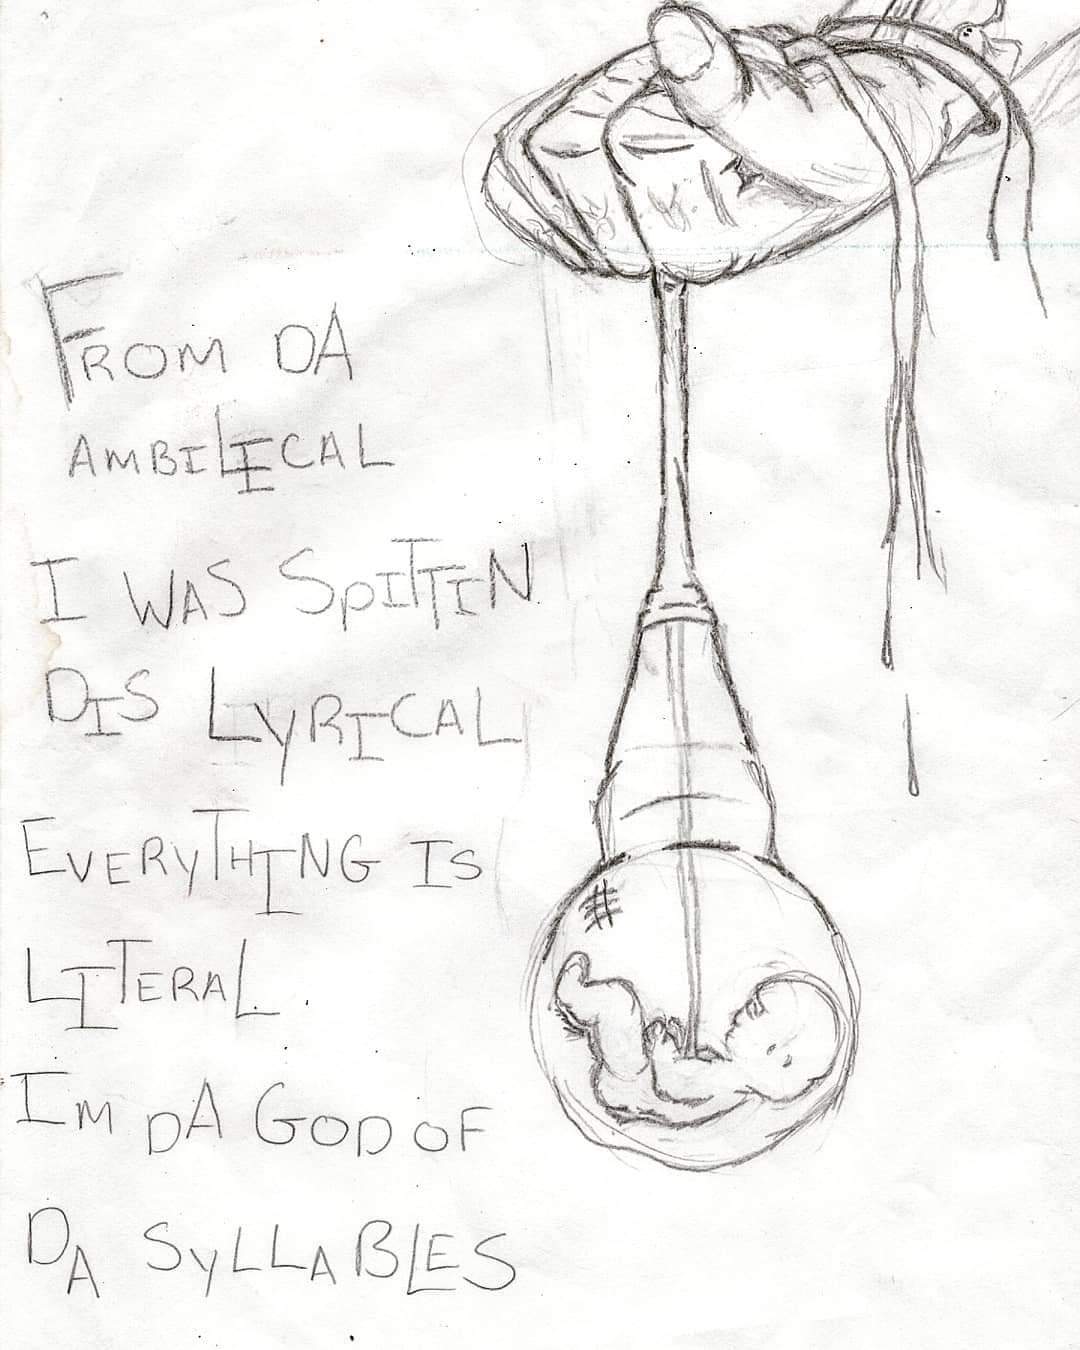 FROM DA
AMBILICAL
I WAS SPITTIN
DIS LYRICAL
EVERYTHING IS
LITERAL.
IM DA GOD OF
DA SYLLABLES